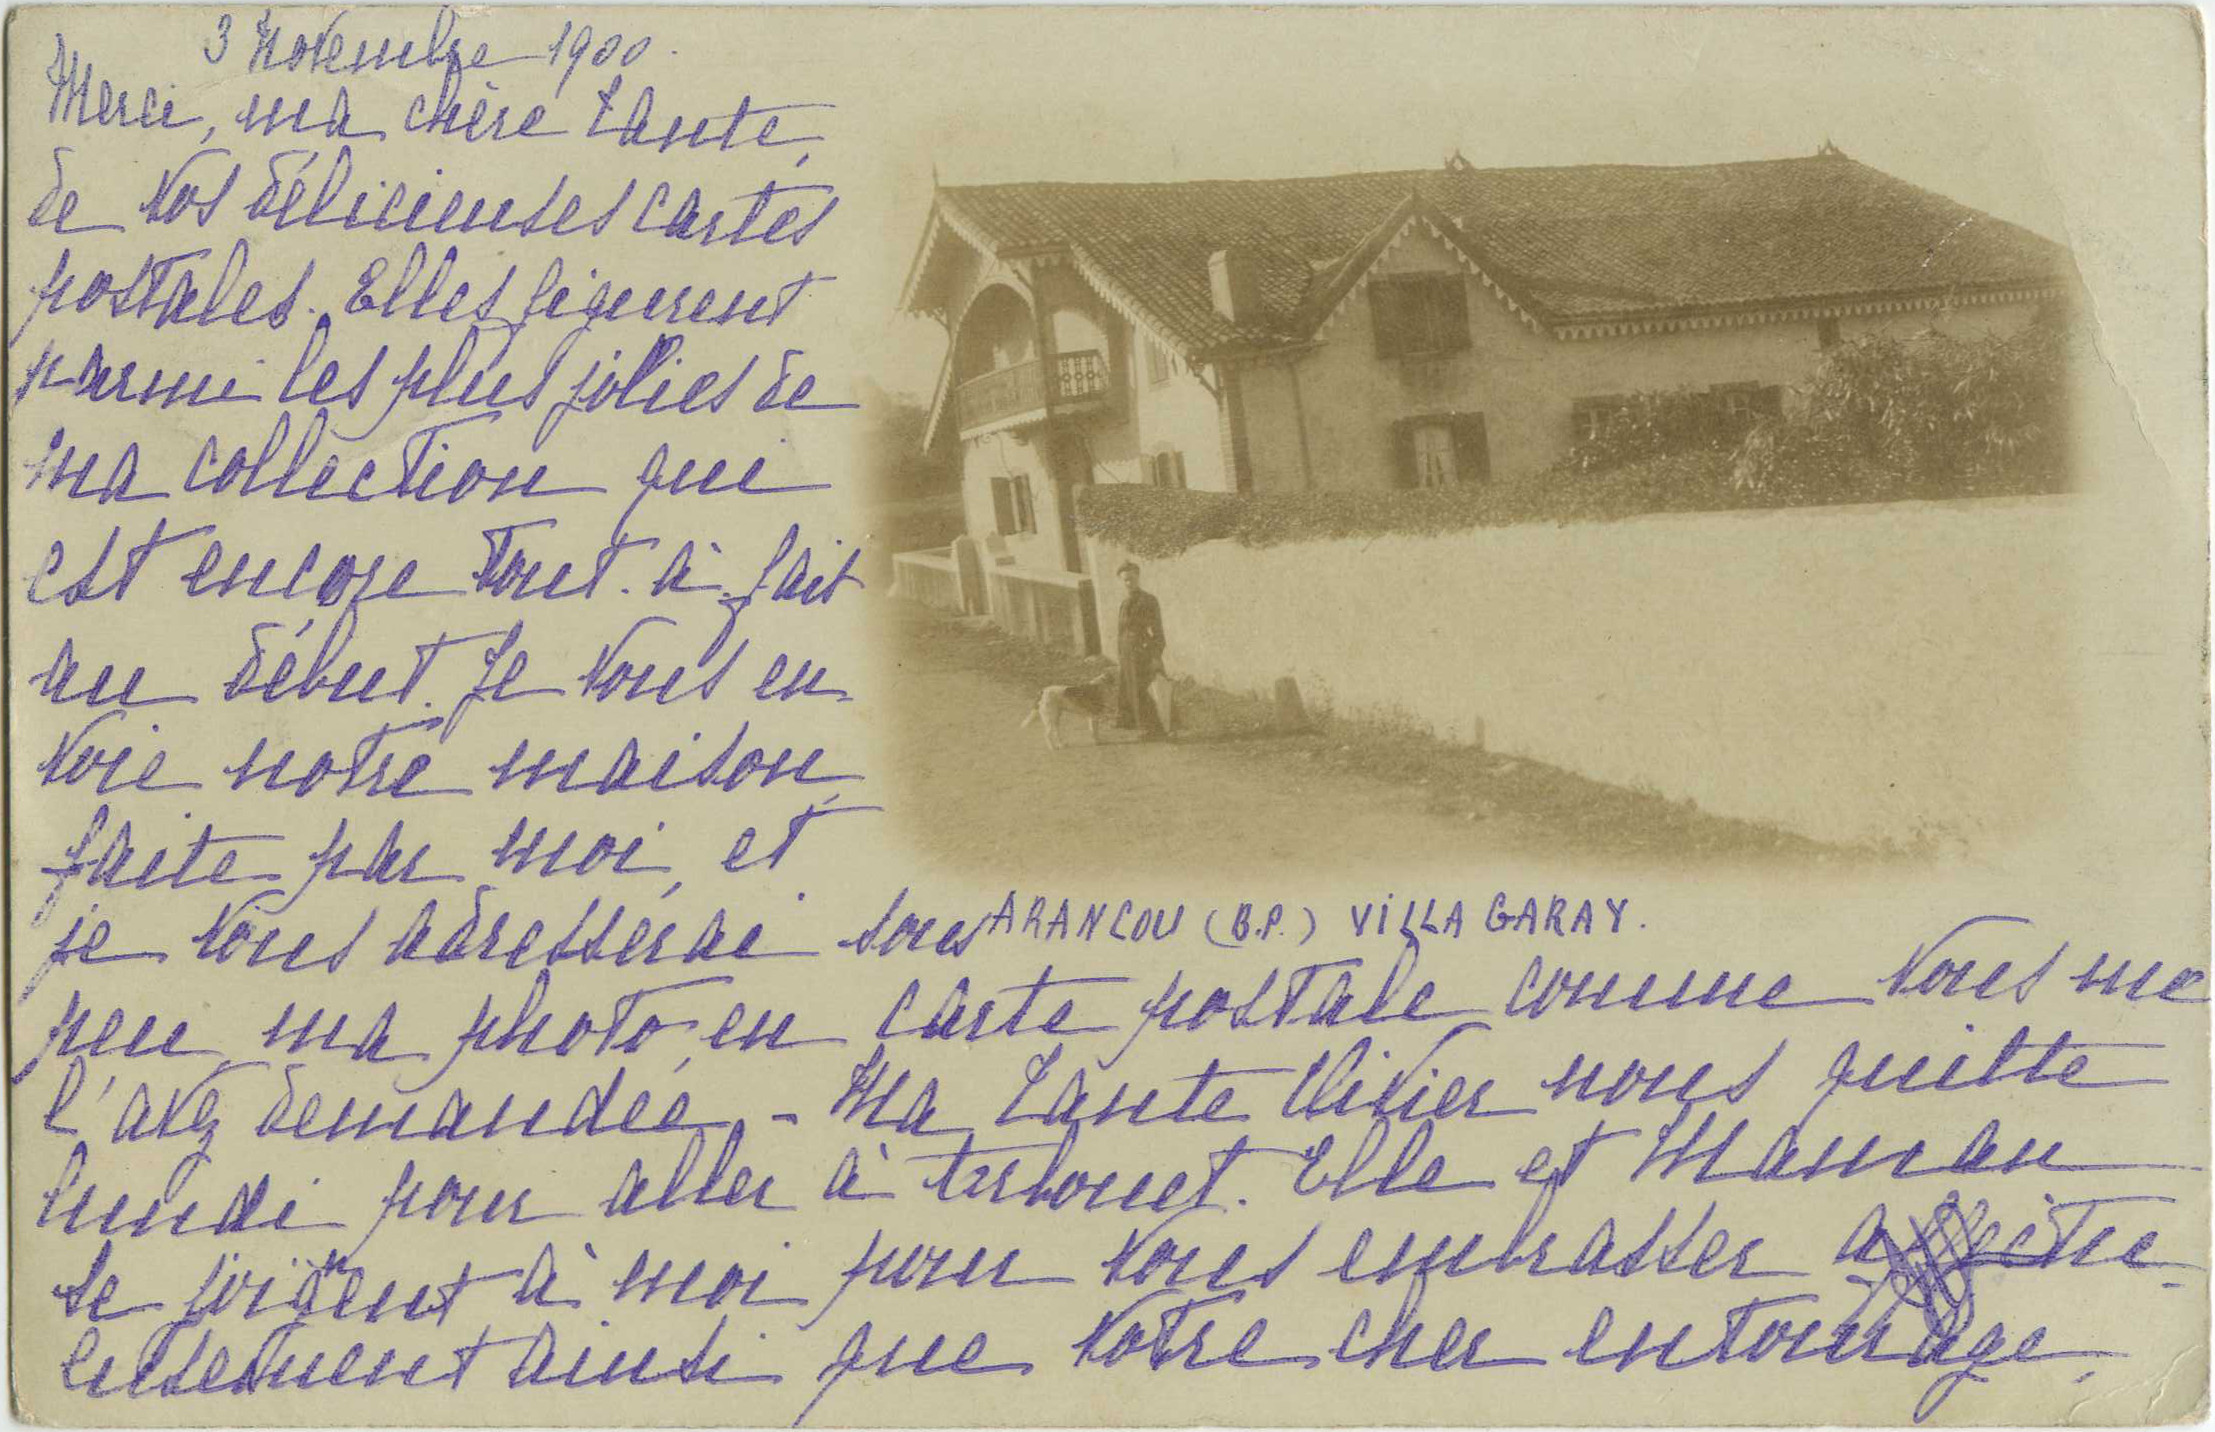 3 Novembre 1900.
Merci, ma chère tante,
de vos délicieuses cartes
postales. Elles figurent
parmi les plus jolies de
ma collection qui
est encore tout-à-fait
au début. Je vous en-
voie notre maison,
faite par moi, et
je vous adresserai sous
ARANCOU (B.P.) VILLA GARAY.
peu, ma photo, en carte postale comme vous me
l'avez demandée. - Ma tante Vivier nous quitte
lundi pour aller à Arbouet. Elle et Maman
se joignent à moi pour vous embrasser affectue-
eusement ainsi que votre cher entourage,